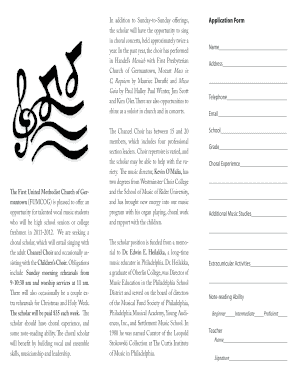 The First United Methodist Church of Ger-
mantown (FUMCOG) is pleased to offer an
opportunity for talented vocal music students
who will be high school senior or college
freshmen in 2011-2012. We are seeking a
choral scholar, which will entail singing with
the adult Chancel Choir and occasionally as-
sisting with the Children's Choir. Obligations
include Sunday morning rehearsals from
9-10:30 am and worship services at 11 am.
There will also occasionally be a couple ex-
tra rehearsals for Christmas and Holy Week.
The scholar will be paid $35 each week. The
scholar should have choral experience, and
some ability to read music. The choral scholar
will benefit by building vocal and ensemble
skills, musicianship and leadership.
In addition to Sunday-to-Sunday offerings,
the scholar will have the opportunity to sing
in choral concerts, held approximately twice a
year. In the past year, the choir has performed
in Handel's Messiah with First Presbyterian
Church of Germantown, Mozart Mass in
C, Requiem by Maurice Duruflé and Missa
Gaia by Paul Halley, Paul Winter, Jim Scott
and Kim Oler. There are also opportunities to
shine as a soloist in church and in concerts.
The Chancel Choir has between 15 and 20
members, which includes four professional
section leaders. Choir repertoire is varied, and
the scholar may be able to help with the va-
riety. The music director, Kevin O'Malia, has
two degrees from Westminster Choir College
and the School of Music of Rider University,
and has brought new energy into our music
program with his organ playing, choral work
and rapport with the children.
The scholar position is funded from a memo-
rial to Dr. Edwin E. Heilakka, a long-time
music educator in Philadelphia. Dr. Heilakka,
a graduate of Oberlin College, was Director of
Music Education in the Philadelphia School
District and served on the board of directors
of the Musical Fund Society of Philadelphia,
Philadelphia Musical Academy, Young Audi-
ences, Inc., and Settlement Music School. In
1980 he was named Curator of the Leopold
Stokowski Collection at The Curtis Institute
of Music in Philadelphia.
Application Form
Name
Address
Telephone
Email
School
Grade
Choral Experience
Additional Music Studies
Extracurricular Activities
Note reading Ability
Beginner Intermediate Proficient
Teacher
Name
Signature